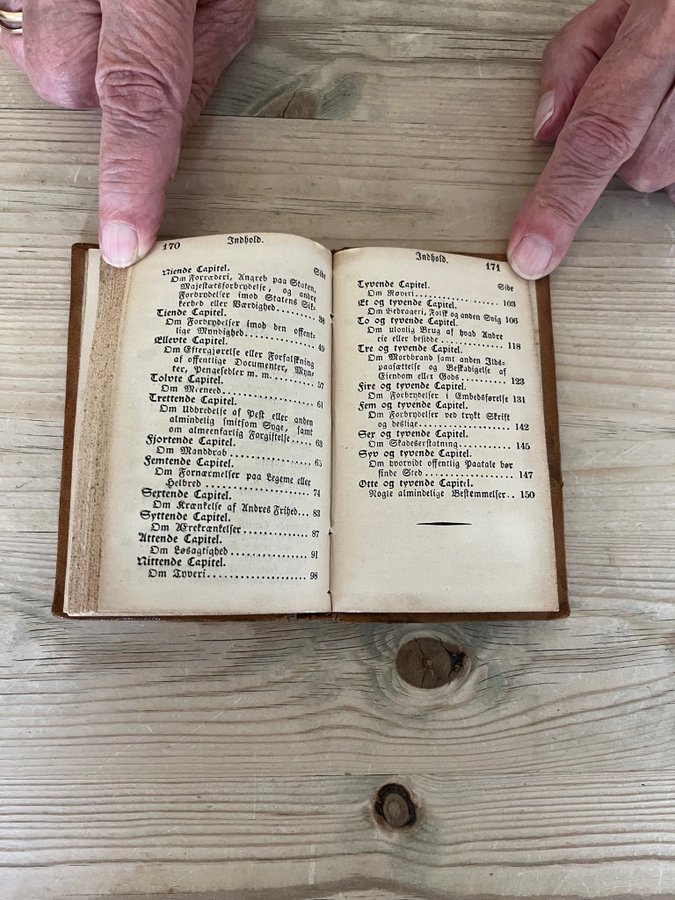 170
Indhold.
Niende Capitel. Side
Om Forræderi, Angreb paa Staten,
Majestætsforbrydelse, og andre
Forbrydelser imod Statens Sik-
kerhed eller Værdighed 38
Tiende Capitel.
Om Forbrydelser imod den offent-
lige Myndighed 49
Ellevte Capitel.
Om Eftergjørelse eller Forfalskning
af offentlige Documenter, Myn-
ter, Pengesedler m. m. 57
Tolvte Capitel.
Om Meeneed 61
Trettende Capitel.
Om Udbredelse af Pest eller anden
almindelig smitsom Syge, samt
om almeenfarlig Forgiftelse 63
Fjortende Capitel.
Om Manddrab 65
Femtende Capitel.
Om Fornærmelser paa Legeme eller
Helbred 74
Sextende Capitel.
Om Krænkelse af Andres Frihed 83
Syttende Capitel.
Om Ærekrænkelser 87
Attende Capitel.
Om Løsagtighed 91
Nittende Capitel.
Om Tyveri 98
Indhold.
171
Tyvende Capitel. Side
Om Røveri 103
Et og tyvende Capitel.
Om Bedrageri, Falsk og anden Svig 106
To og tyvende Capitel.
Om ulovlig Brug af hvad Andre
eie eller besidde 118
Tre og tyvende Capitel.
Om Mordbrand samt anden Ilds-
paasættelse og Beskadigelse af
Eiendom eller Gods 123
Fire og tyvende Capitel.
Om Forbrydelser i Embedsførelse 131
Fem og tyvende Capitel.
Om Forbrydelser ved trykt Skrift
og deslige 142
Sex og tyvende Capitel.
Om Skadeserstatning 145
Syv og tyvende Capitel.
Om hvorvidt offentlig Paatale bør
finde Sted 147
Otte og tyvende Capitel.
Nogle almindelige Bestemmelser 150